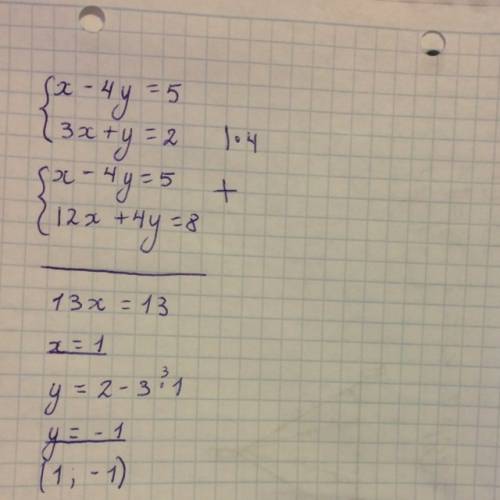 x - 4y = 5
3x + y = 2 | · 4
x - 4y = 5 +
12x + 4y = 8
13x = 13
x = 1
y = 2 - 3 · 1
3
y = - 1
(1 ; -1)